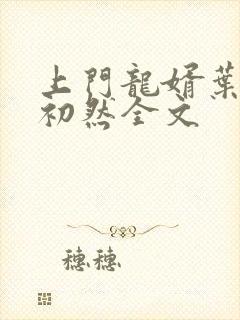 上門龍婿葉
初然全文
穗穗